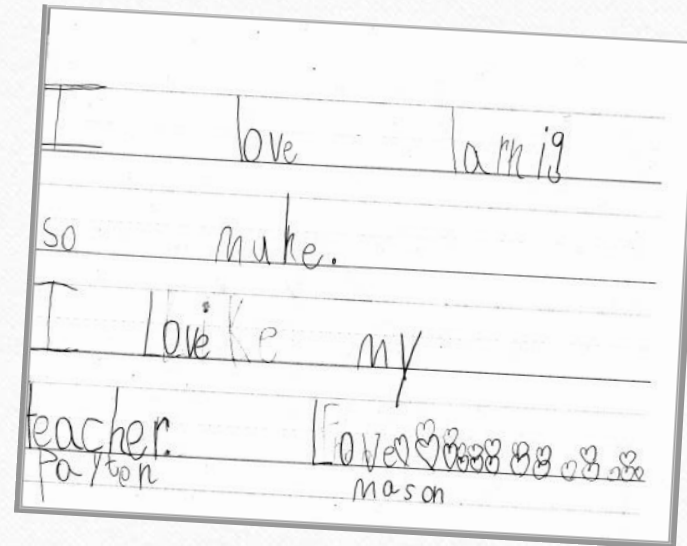 I love larnig
so muhe.
I love my
teacher. Love
Payton mason